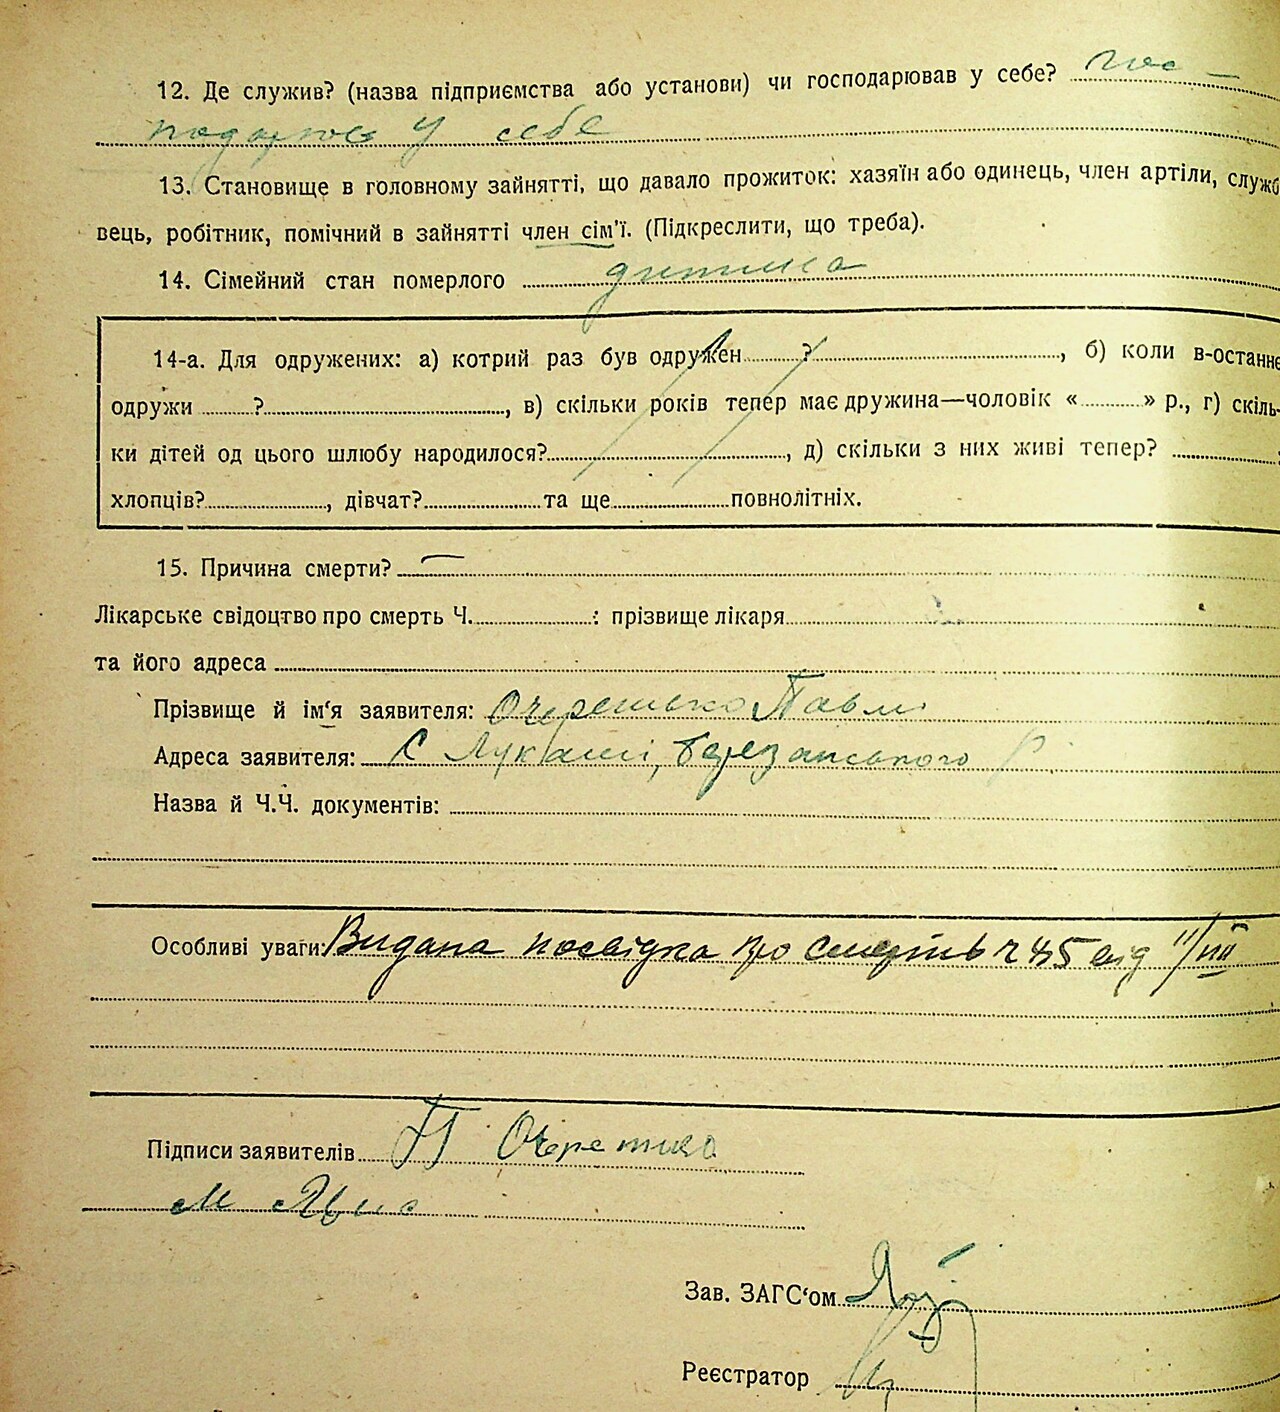 12. Де служив? (назва підприємства або установи) чи господарював у себе? гос-
подарює у себе
13. Становище в головному зайнятті, що давало прожиток: хазяїн або одинець, член артіли, службо-
вець, робітник, помічний в зайнятті член сім'ї. (Підкреслити, що треба).
14. Сімейний стан померлого дитина
14-а. Для одружених: а) котрий раз був одружен ?, б) коли в-останнє
одружи ?, в) скільки років тепер має дружина—чоловік « » р., г) скіль-
ки дітей од цього шлюбу народилося?, д) скільки з них живі тепер?
хлопців?, дівчат? та ще повнолітніх.
15. Причина смерти? —
Лікарське свідоцтво про смерть Ч. : прізвище лікаря
та його адреса
Прізвище й ім'я заявителя: Очеретько Павло
Адреса заявителя: С Лукаші, Березанського Р
Назва й Ч.Ч. документів:
Особливі уваги: Видана посвідка про смерть ч 45 від 11/VII
Підписи заявителів П Очеретько
М
Зав. ЗАГС'ом
Реєстратор